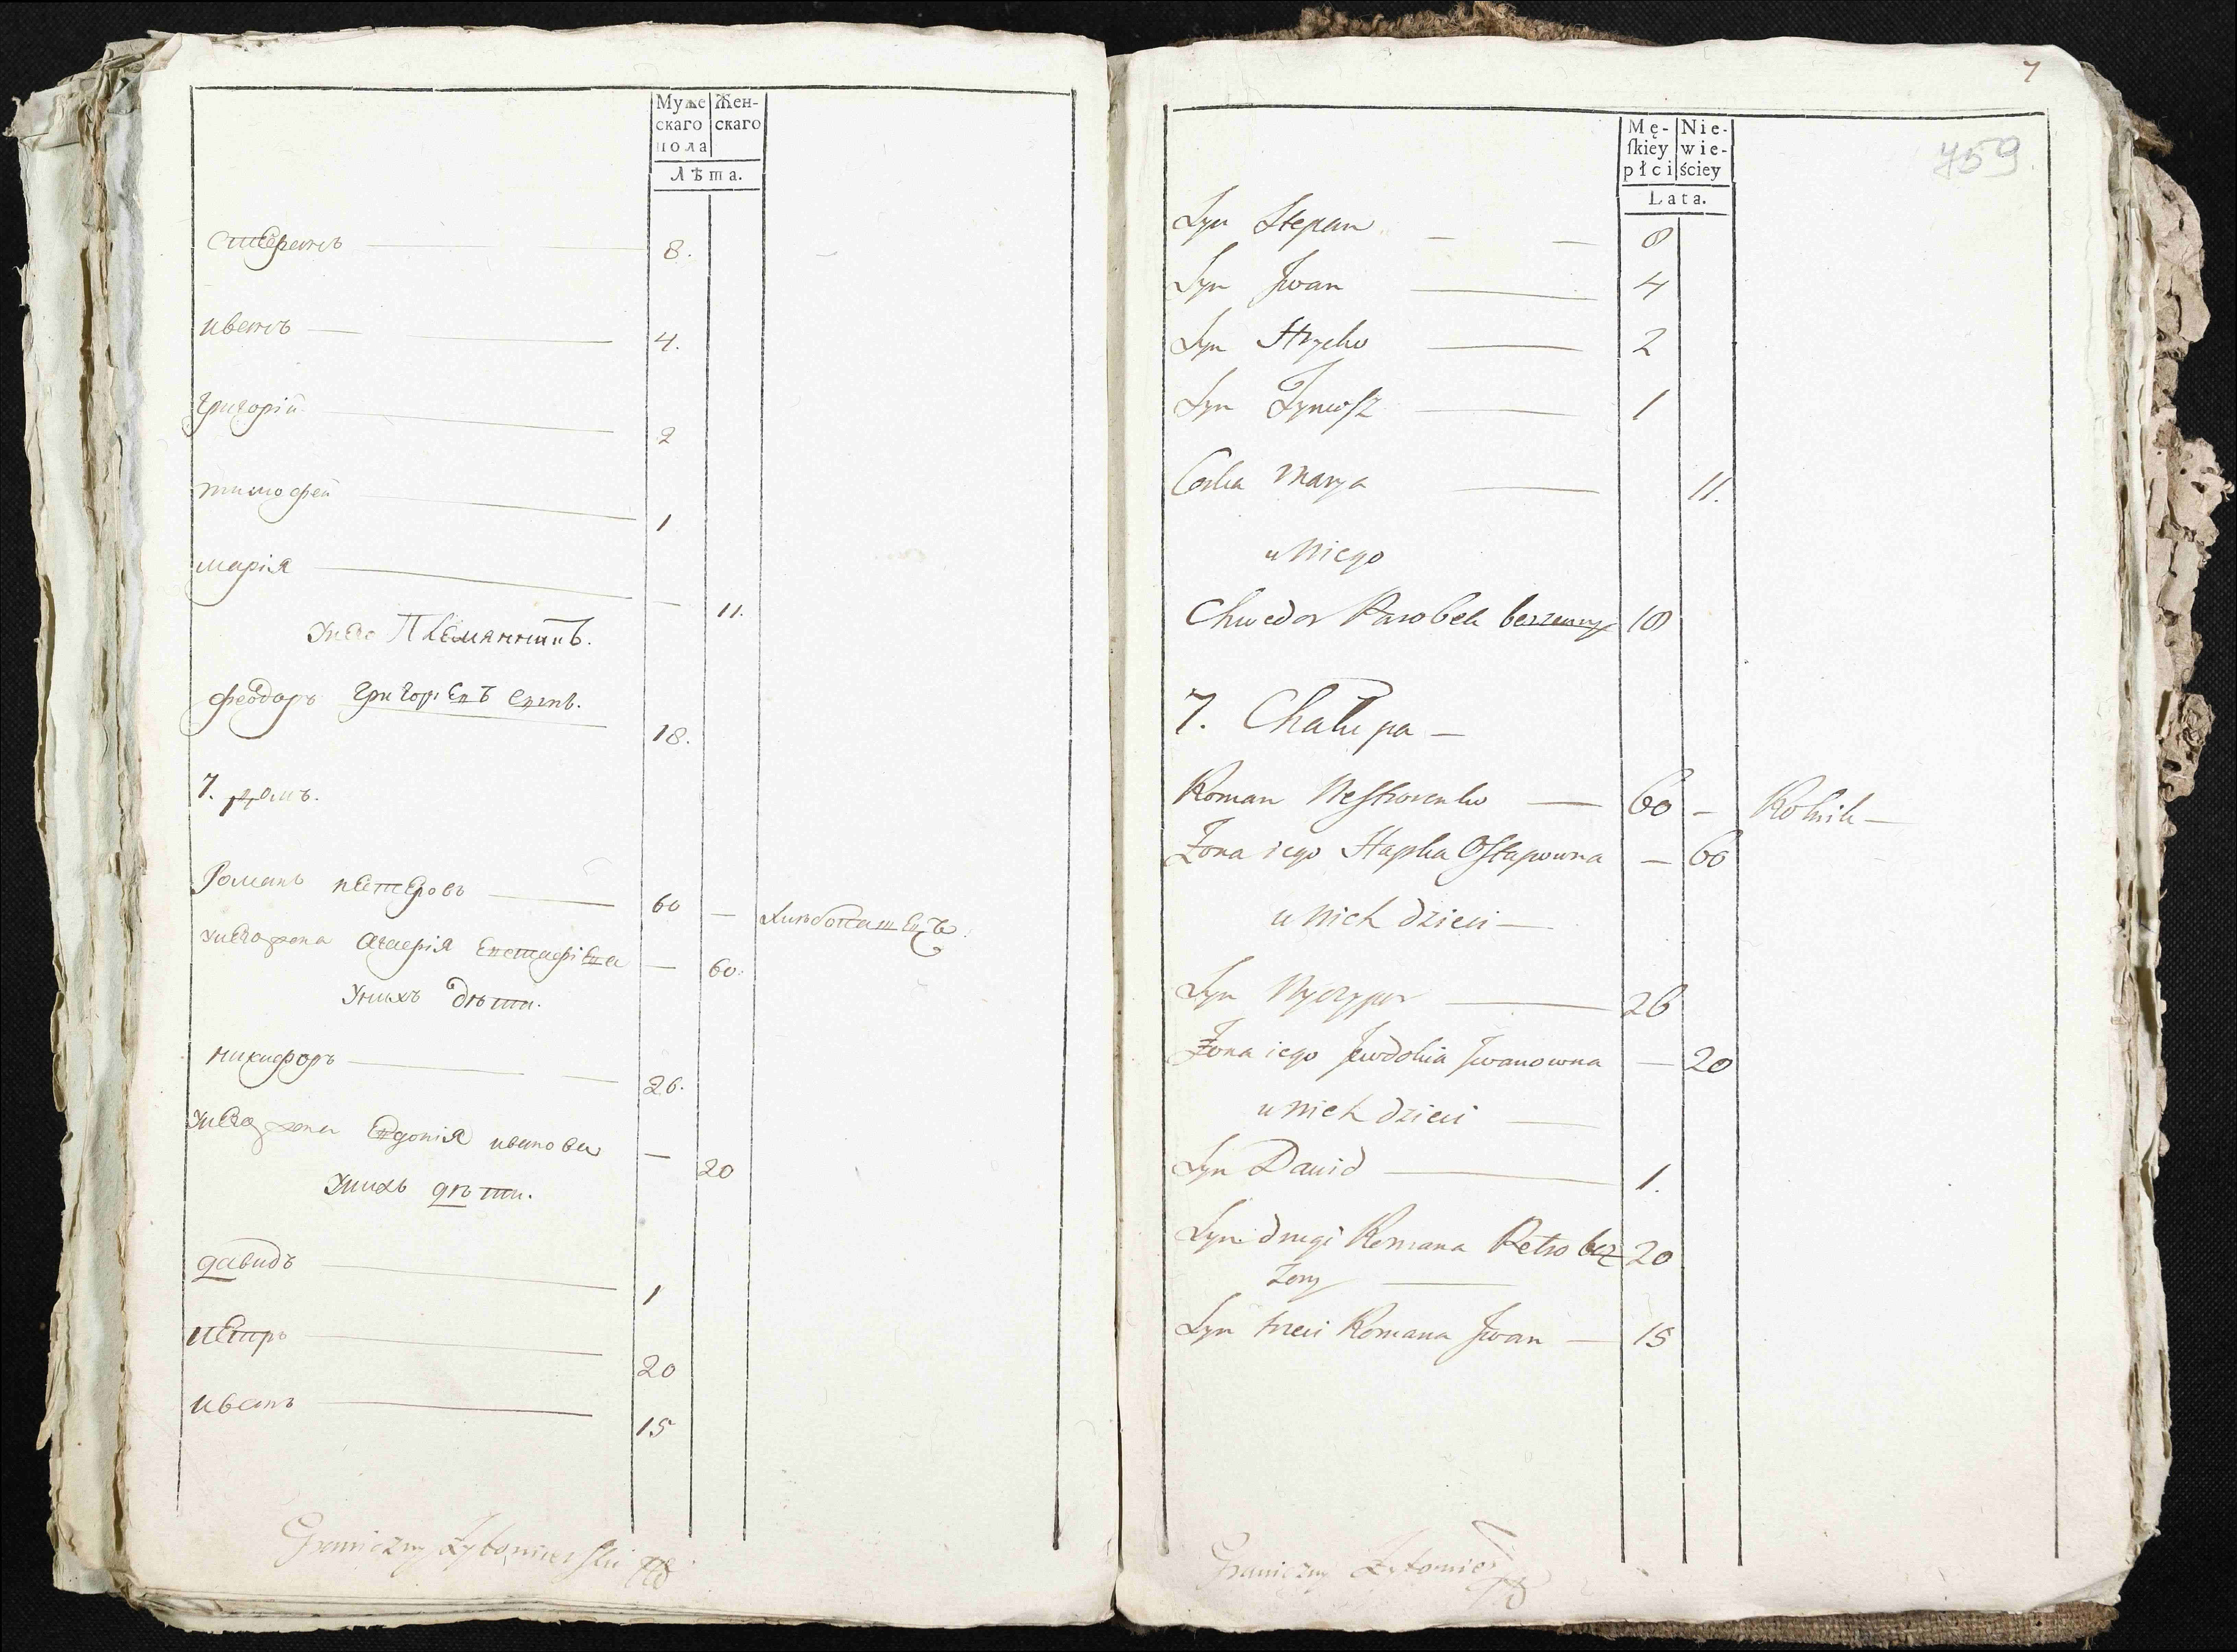 Муже
скаго
пола
Жен-
скаго
Лѣта.
Степанъ 8.
иванъ 4.
григорій 2
тимофей 1
марія 11.
унево Племянникъ.
феодоръ григорьевъ сынъ. 18.
7. домъ.
Романъ нестеровъ 60 — хлѣбопашецъ.
унево жена агафія евстафіева — 60.
унихъ дѣти.
никифоръ 26.
унево жена евдокія иванова — 20
унихъ дѣти.
давидъ 1
петръ 20
иванъ 15
Graniczny Żytomierski
7
759.
Mę-
ſkiey
płci
Nie-
wie-
ściey
Lata.
Syn Stepan — — 8
Syn Jwan 4
Syn Hryćko 2
Syn Tymoſz 1
Corka Marya 11.
u Niego
Chwedor Parobek bezzenny 18
7. Chałupa —
Roman Neſtorenko — 60 — Rolnik —
Żona iego Hapka Oſtapowna — 60
u Nich dzieci —
Syn Nyczypor 26
Żona iego Jewdokia Jwanowna — 20
u Nich dzieci —
Syn Dawid 1.
Syn drugi Romana Petro bez 20
Zony
Syn trzeci Romana Jwan — 15
Graniczny Żytomier